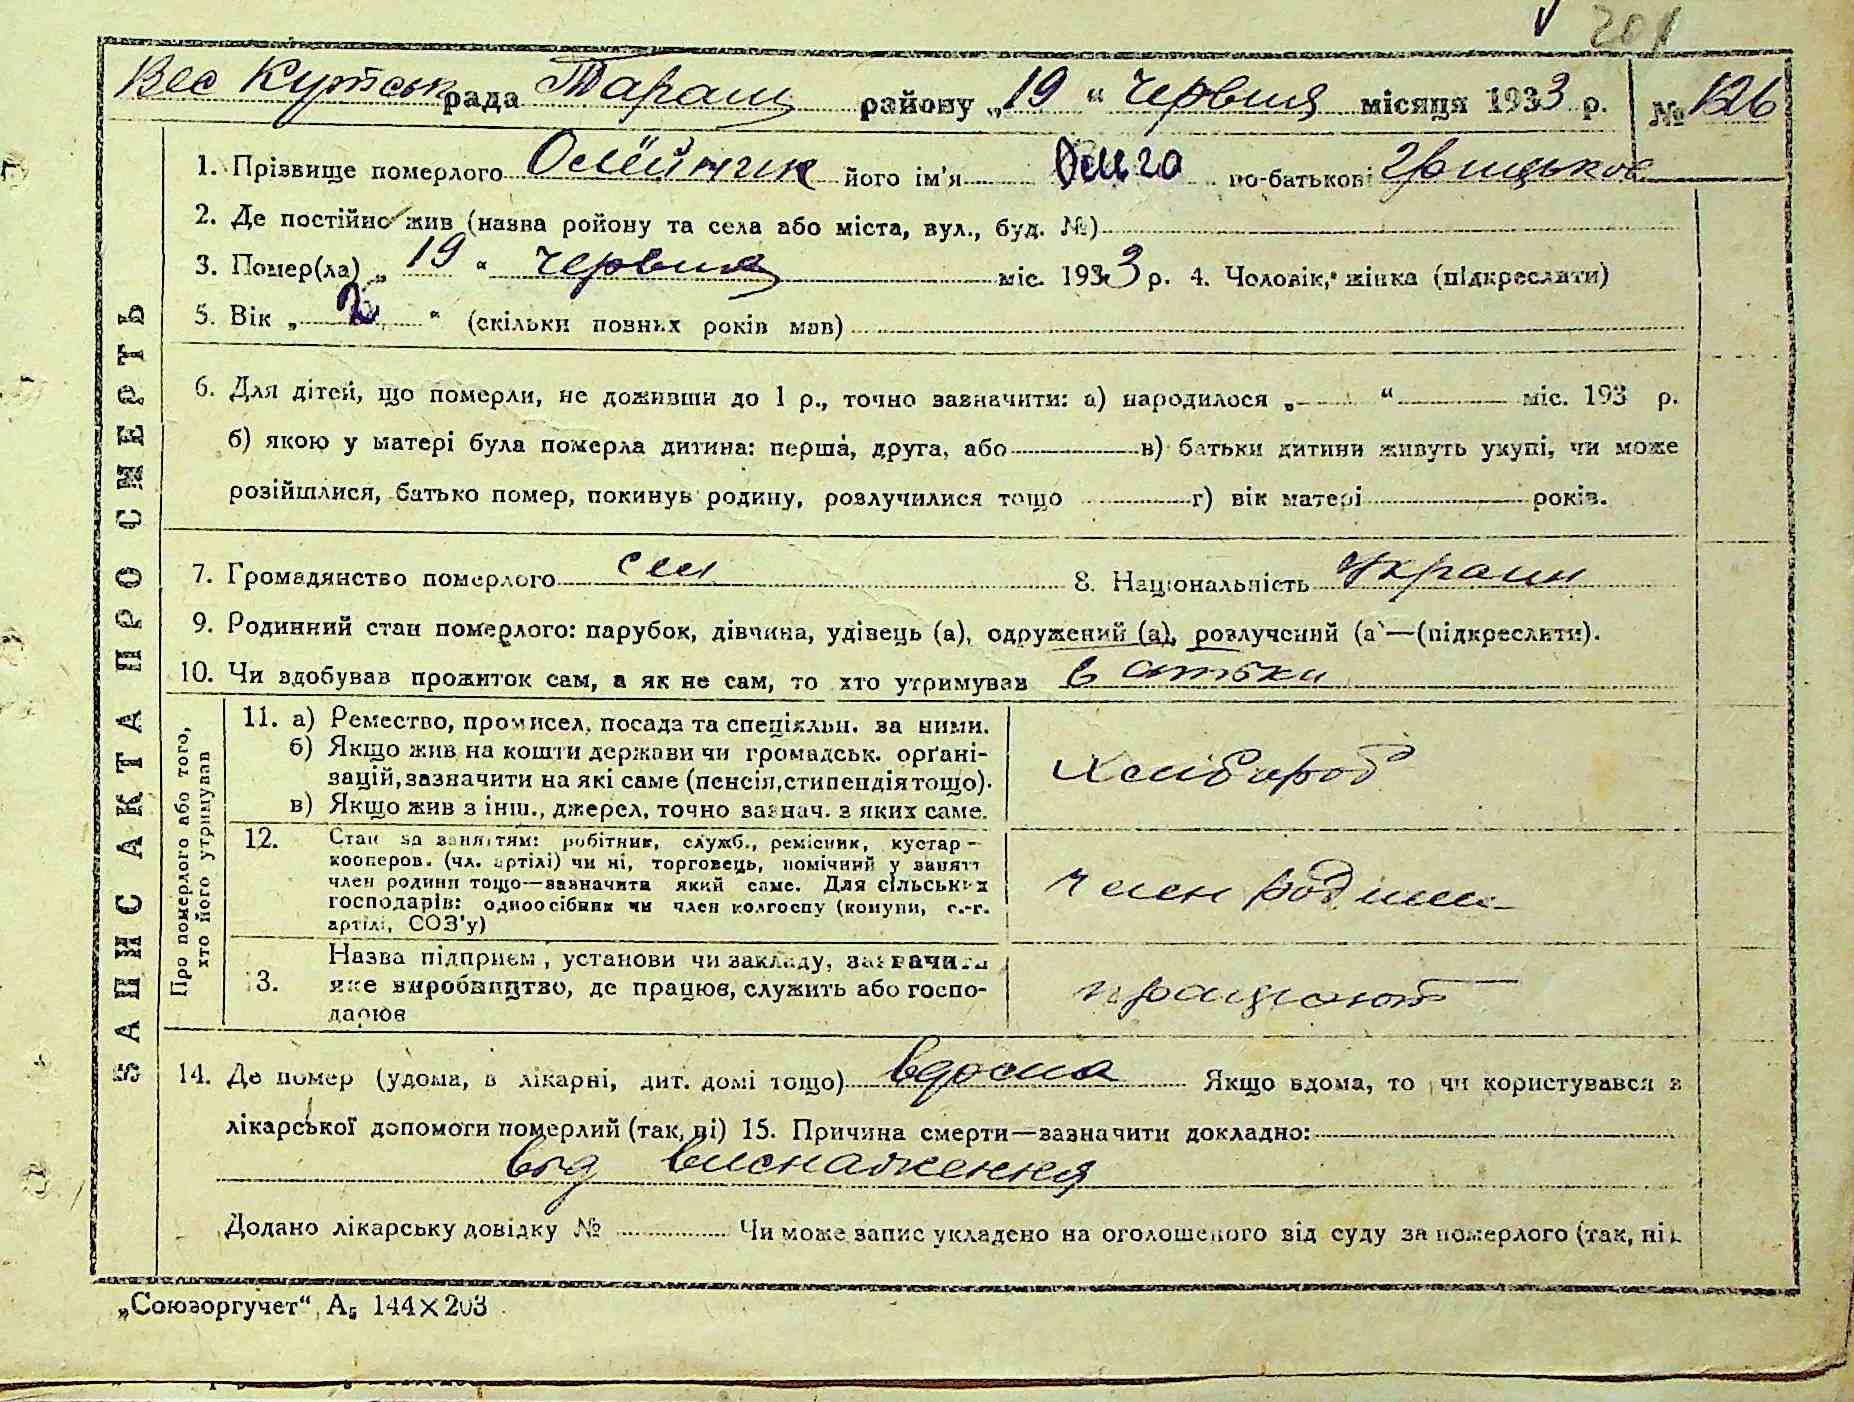 201
Вес Кутськ рада Таращ району „19“ червня місяця 1933 р. № 126
1. Прізвище померлого Олейник його ім'я по-батькові
2. Де постійно жив (назва ройону та села або міста, вул., буд. №)
3. Помер(ла) „19“ червня міс. 1933 р. 4. Чоловік, жінка (підкреслити)
5. Вік „2“ (скільки повних років мав)
6. Для дітей, що померли, не доживши до 1 р., точно зазначити: а) народилося „ “ міс. 193 р.
б) якою у матері була померла дитина: перша, друга, або в) батьки дитини живуть укупі, чи може
розійшлися, батько помер, покинув родину, розлучилися тощо г) вік матері років.
7. Громадянство померлого 8. Національність Украин
9. Родинний стан померлого: парубок, дівчина, удівець (а), одружений (а), розлучений (а)—(підкреслити).
10. Чи здобував прожиток сам, а як не сам, то хто утримував батьки
ЗАПИС АКТА ПРО СМЕРТЬ
Про померлого або того, хто його утримував
11. а) Ремество, промисел, посада та спеціяльн. за ними.
б) Якщо жив на кошти держави чи громадськ. орґані-
зацій, зазначити на які саме (пенсія, стипендія тощо).
в) Якщо жив з інш., джерел, точно зазнач. з яких саме.
хлібороб
12. Стан за заняттям: робітник, служб., ремісник, кустар-
кооперов. (чл. артілі) чи ні, торговець, помічний у занятт
член родини тощо—зазначити який саме. Для сільських
господарів: одноосібник чи член колгоспу (комуни, с.-г.
артілі, СОЗ'у)
член родини
13. Назва підприєм, установи чи закладу, зазначити
яке виробництво, де працює, служить або госпо-
дарює
працюют
14. Де помер (удома, в лікарні, дит. домі тощо) вдома Якщо вдома, то чи користувався з
лікарської допомоги померлий (так, ні) 15. Причина смерти—зазначити докладно:
від виснаження
Додано лікарську довідку № Чи може запис укладено на оголошеного від суду за померлого (так, ні).
„Союзоргучет“, А5 144×203